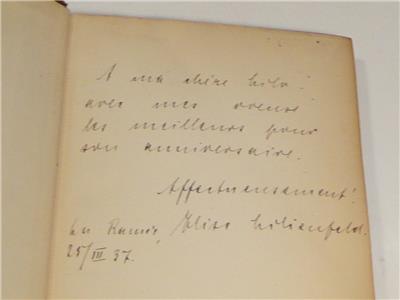 A ma chère Lilo!
avec mes voeux
les meilleurs pour
son anniversaire.
Affectueusement!
Elisa Lilienfeld.
25/III 37.